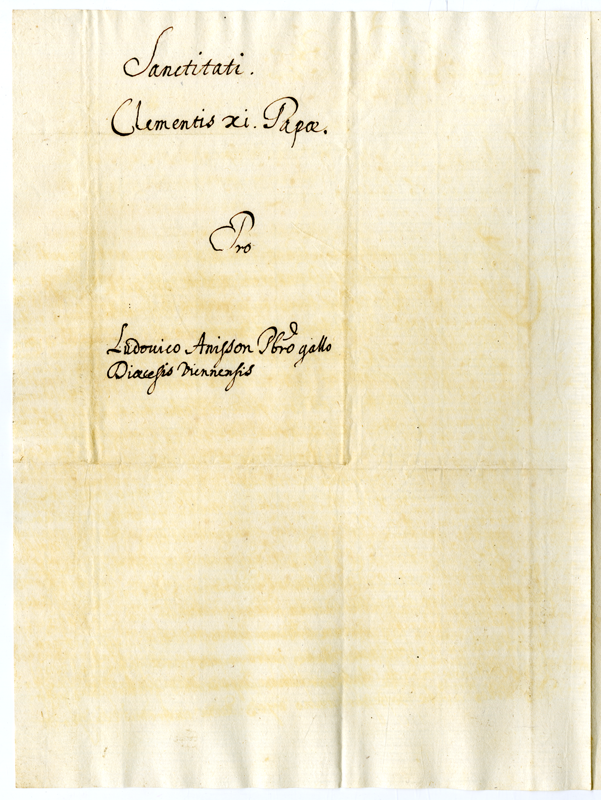 Sanctitati.
Clementis xi. Papæ.
Pro
Ludovico Anisson Pbro gallo
Diœcesis Viennensis